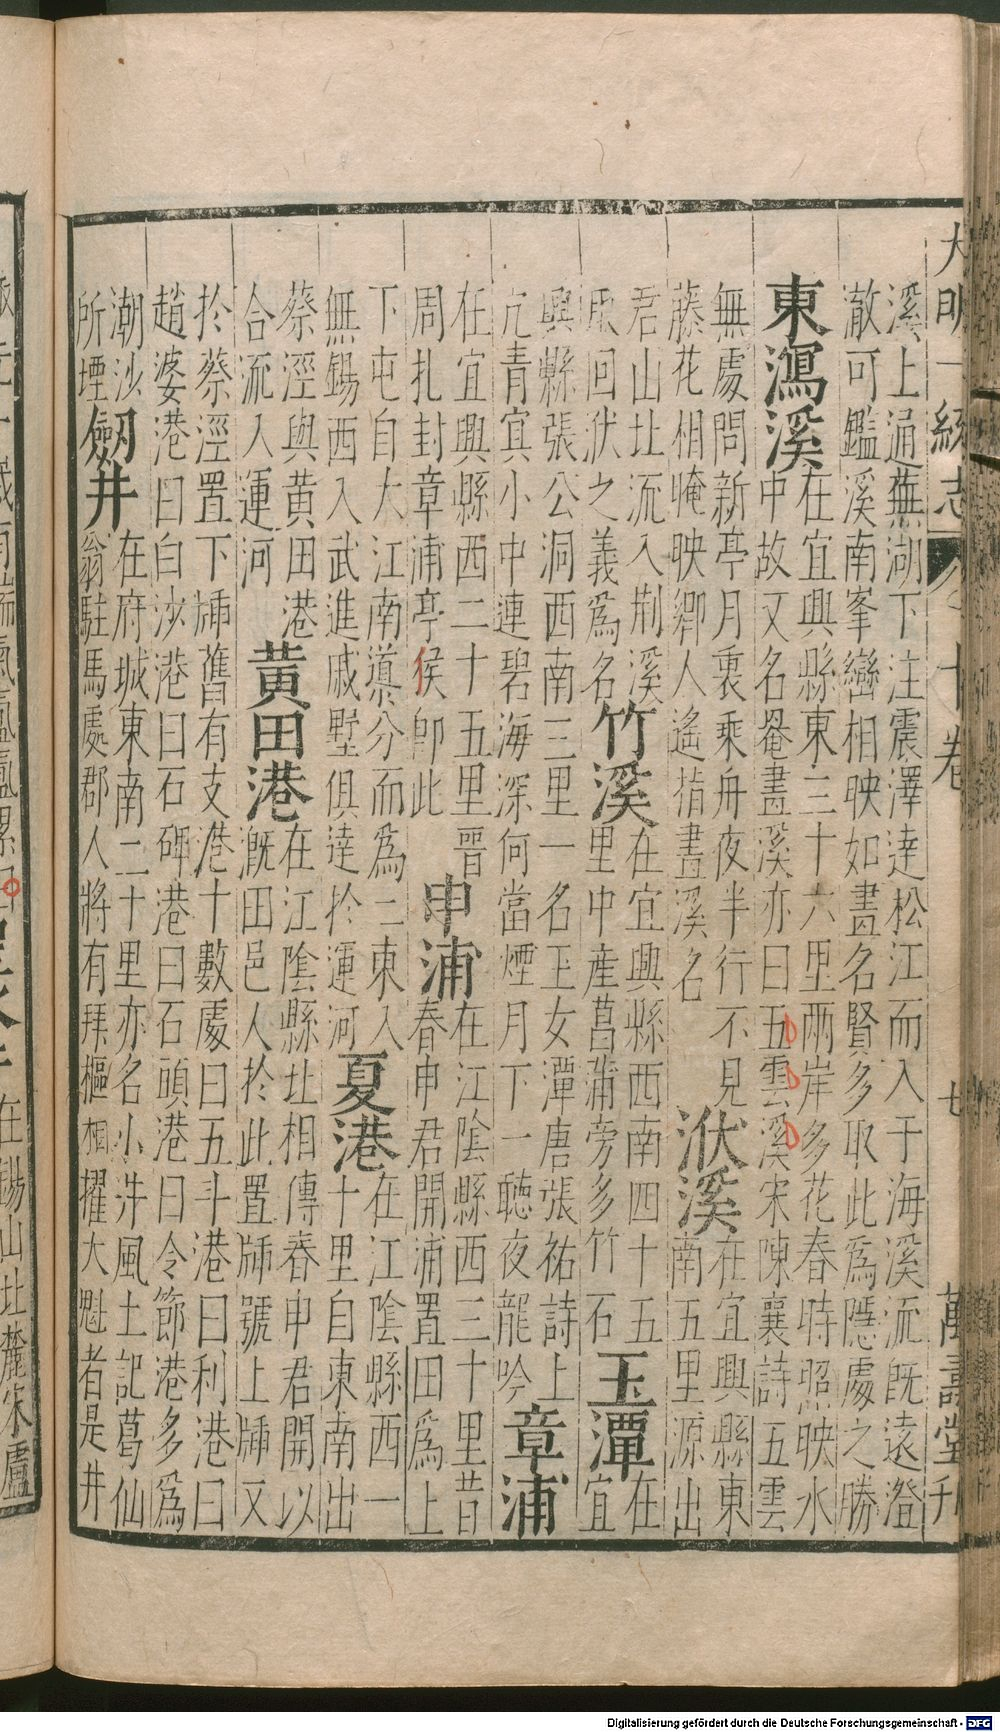 大明一統志 卷十卷 七 萬壽堂刊
溪上通蕪湖下注震澤達松江而入于海溪流旣遠澄
澈可鑑溪南峯巒相映如畫名賢多取此爲隱處之勝
東瀉溪
在宜興縣東三十六里兩岸多花春時照映水
中故又名罨畫溪亦曰五雲溪宋陳襄詩五雲
無處問新亭月裏乘舟夜半行不見
藤花相晻映鄉人遙指畫溪名
洑溪
在宜興縣東
南五里源出
君山北流入荆溪
取回洑之義爲名
竹溪
在宜興縣西南四十五
里中産菖蒲旁多竹石
玉潭
在
宜
興縣張公洞西南三里一名玉女潭唐張祐詩上
亢青宜小中連碧海深何當煙月下一聽夜龍吟
章浦
在宜興縣西二十五里晉
周札封章浦亭侯卽此
申浦
在江陰縣西三十里昔
春申君開浦置田爲上
下屯自大江南導分而爲二東入
無錫西入武進戚墅俱達於運河
夏港
在江陰縣西一
十里自東南出
蔡涇與黄田港
合流入運河
黄田港
在江陰縣北相傳春申君開以
漑田邑人於此置牐號上牐又
於蔡涇置下牐舊有支港十數處曰五斗港曰利港曰
趙婆港曰白沙港曰石碑港曰石頭港曰令節港多爲
潮沙
所堙
劒井
在府城東南二十里亦名小井風土記葛仙
翁駐馬處郡人將有拜樞相擢大魁者是井
在錫山北麓宋盧
Digitalisierung gefördert durch die Deutsche Forschungsgemeinschaft - DFG